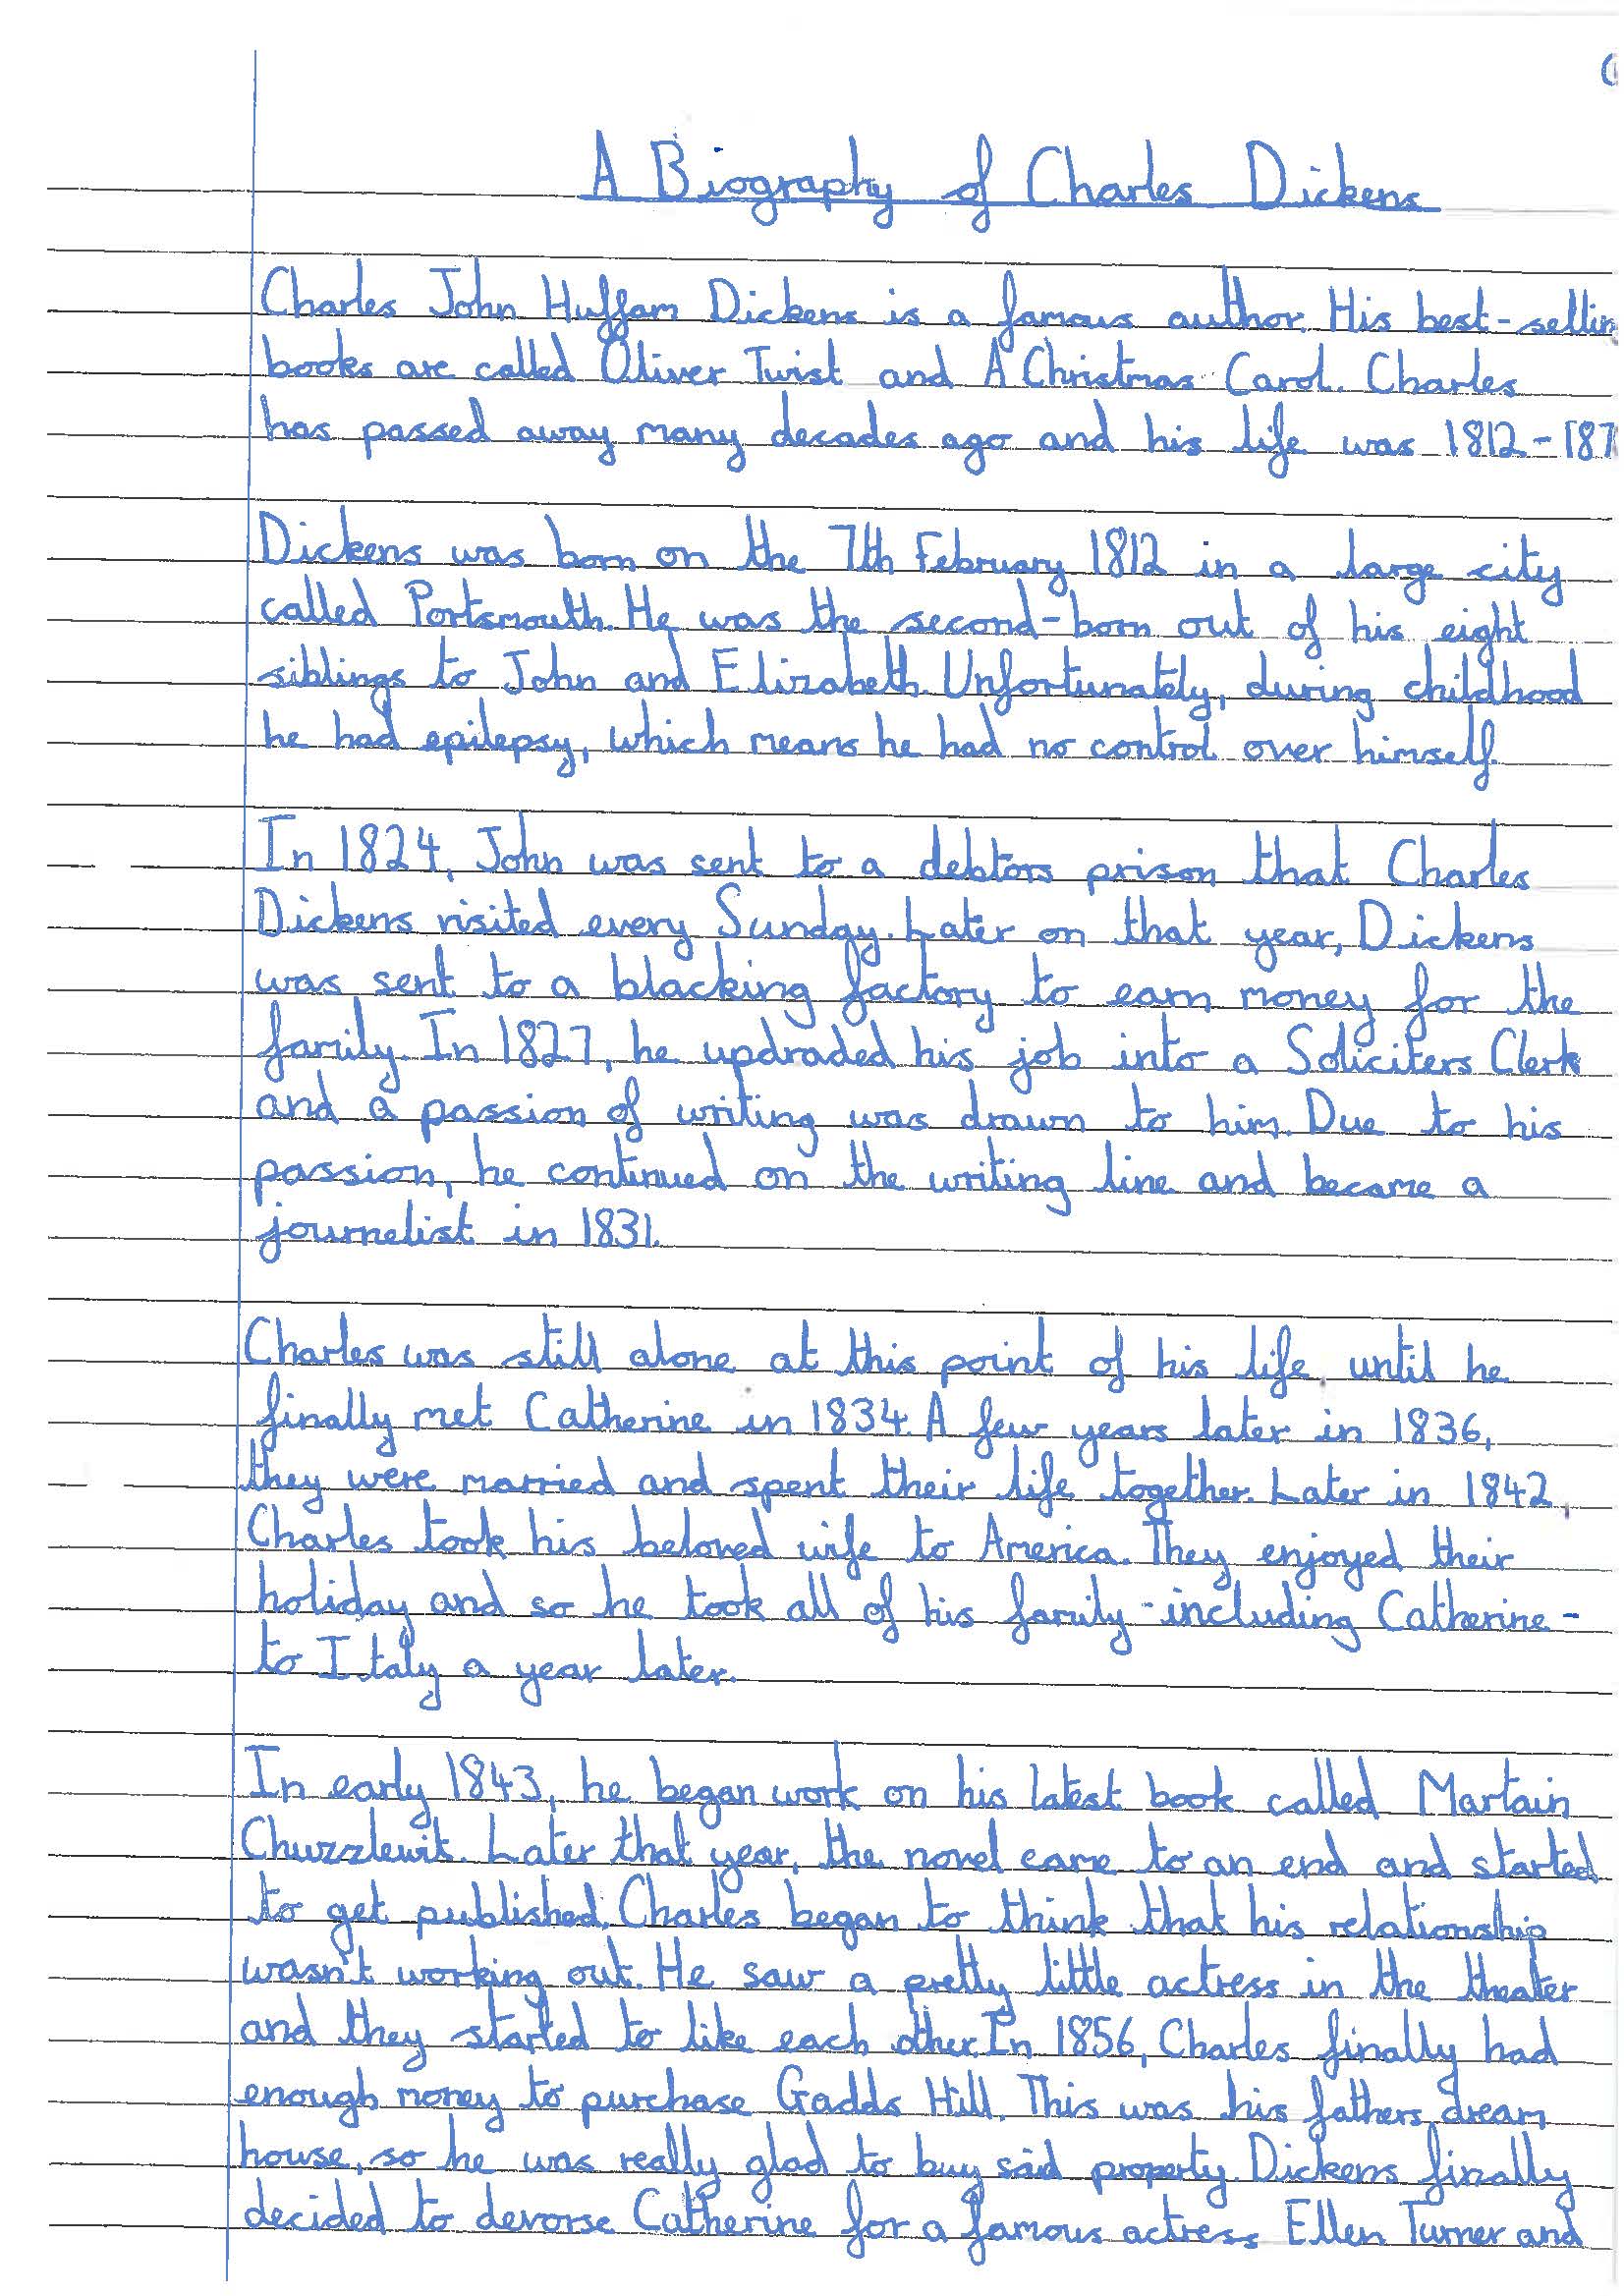 A Biography of Charles Dickens
Charles John Huffam Dickens is a famous author. His best-sellin
books are called Oliver Twist and A Christmas Carol. Charles
has passed away many decades ago and his life was 1812-187
Dickens was born on the 7th February 1812 in a large city
called Portsmouth. He was the second-born out of his eight
siblings to John and Elizabeth. Unfortunately, during childhood
he had epilepsy, which means he had no control over himself.
In 1824, John was sent to a debtors prison that Charles
Dickens visited every Sunday. Later on that year, Dickens
was sent to a blacking factory to earn money for the
family. In 1827, he updraded his job into a Soliciters Clerk
and a passion of writing was drawn to him. Due to his
passion, he continued on the writing line and became a
journelist in 1831.
Charles was still alone at this point of his life, until he
finally met Catherine in 1834. A few years later in 1836,
they were married and spent their life together. Later in 1842,
Charles took his beloved wife to America. They enjoyed their
holiday and so he took all of his family - including Catherine -
to Italy a year later.
In early 1843, he began work on his latest book called Martain
Chuzzlewit. Later that year, the novel came to an end and started
to get published. Charles began to think that his relationship
wasn't working out. He saw a pretty little actress in the theater
and they started to like each other. In 1856, Charles finally had
enough money to purchase Gadds Hill. This was his fathers dream
house, so he was really glad to buy said property. Dickens finally
decided to devorse Catherine for a famous actress Ellen Turner and